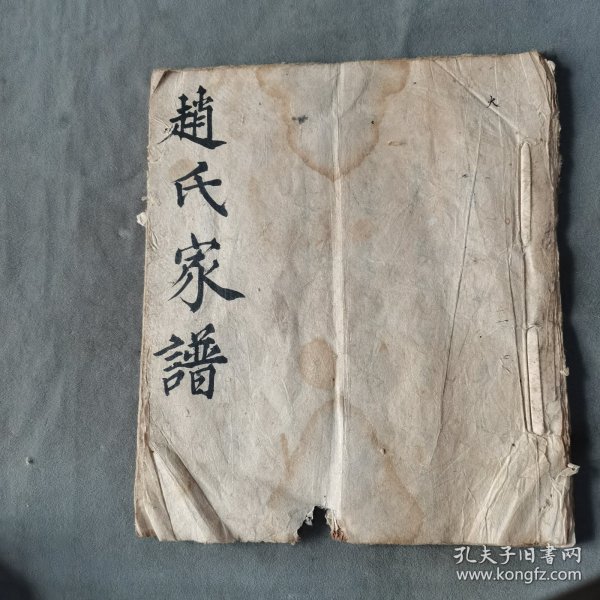 趙氏家譜
大
孔夫子旧书网
www.kongfz.com